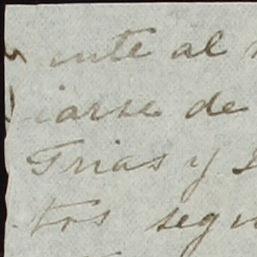 ente al
iarse de
Frias y
tos segu